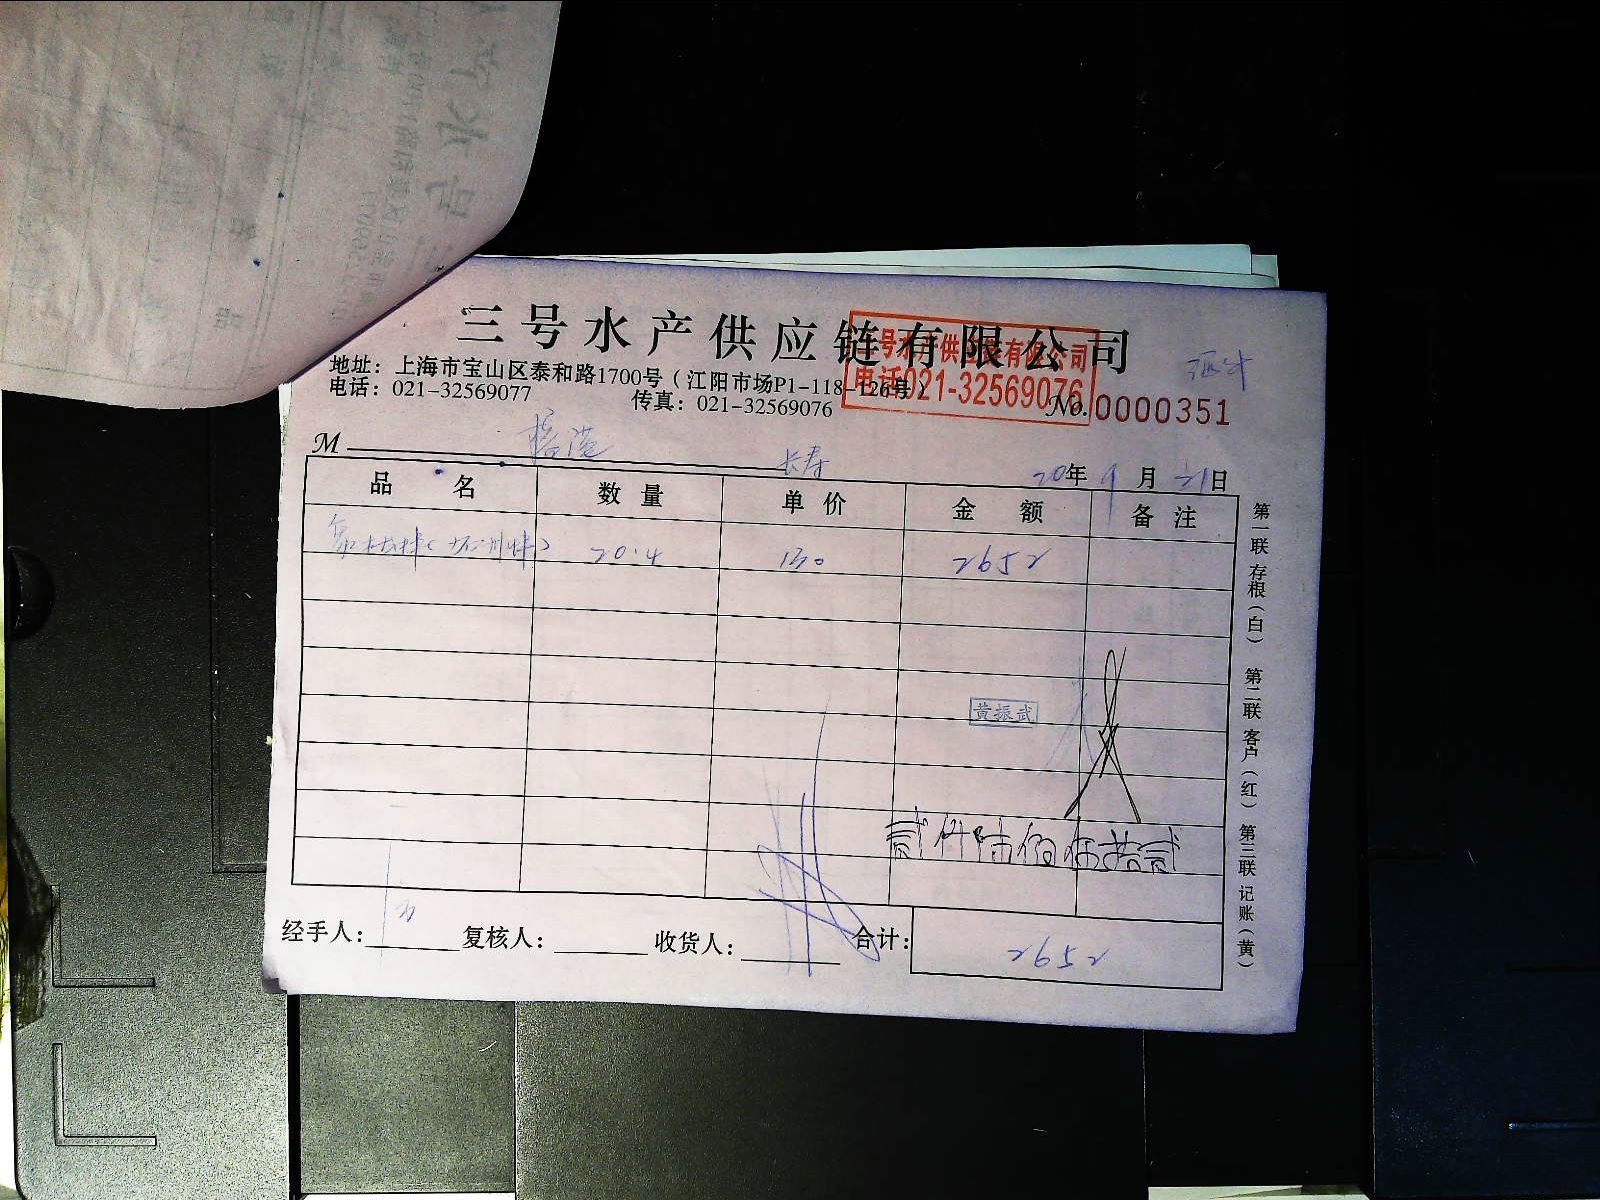 三号水产供应链有限公司
三号水产供应链有限公司
电话021-32569076
地址：上海市宝山区泰和路1700号（江阳市场P1-118-126号）
电话：021-32569077 传真：021-32569076
No.0000351
M 长寿 20年9月21日
品名 数量 单价 金额 备注
20.4 130 2652
黄振武
贰仟陆佰伍拾贰
经手人： 复核人： 收货人： 合计： 2652
第一联存根（白） 第二联客户（红） 第三联记账（黄）